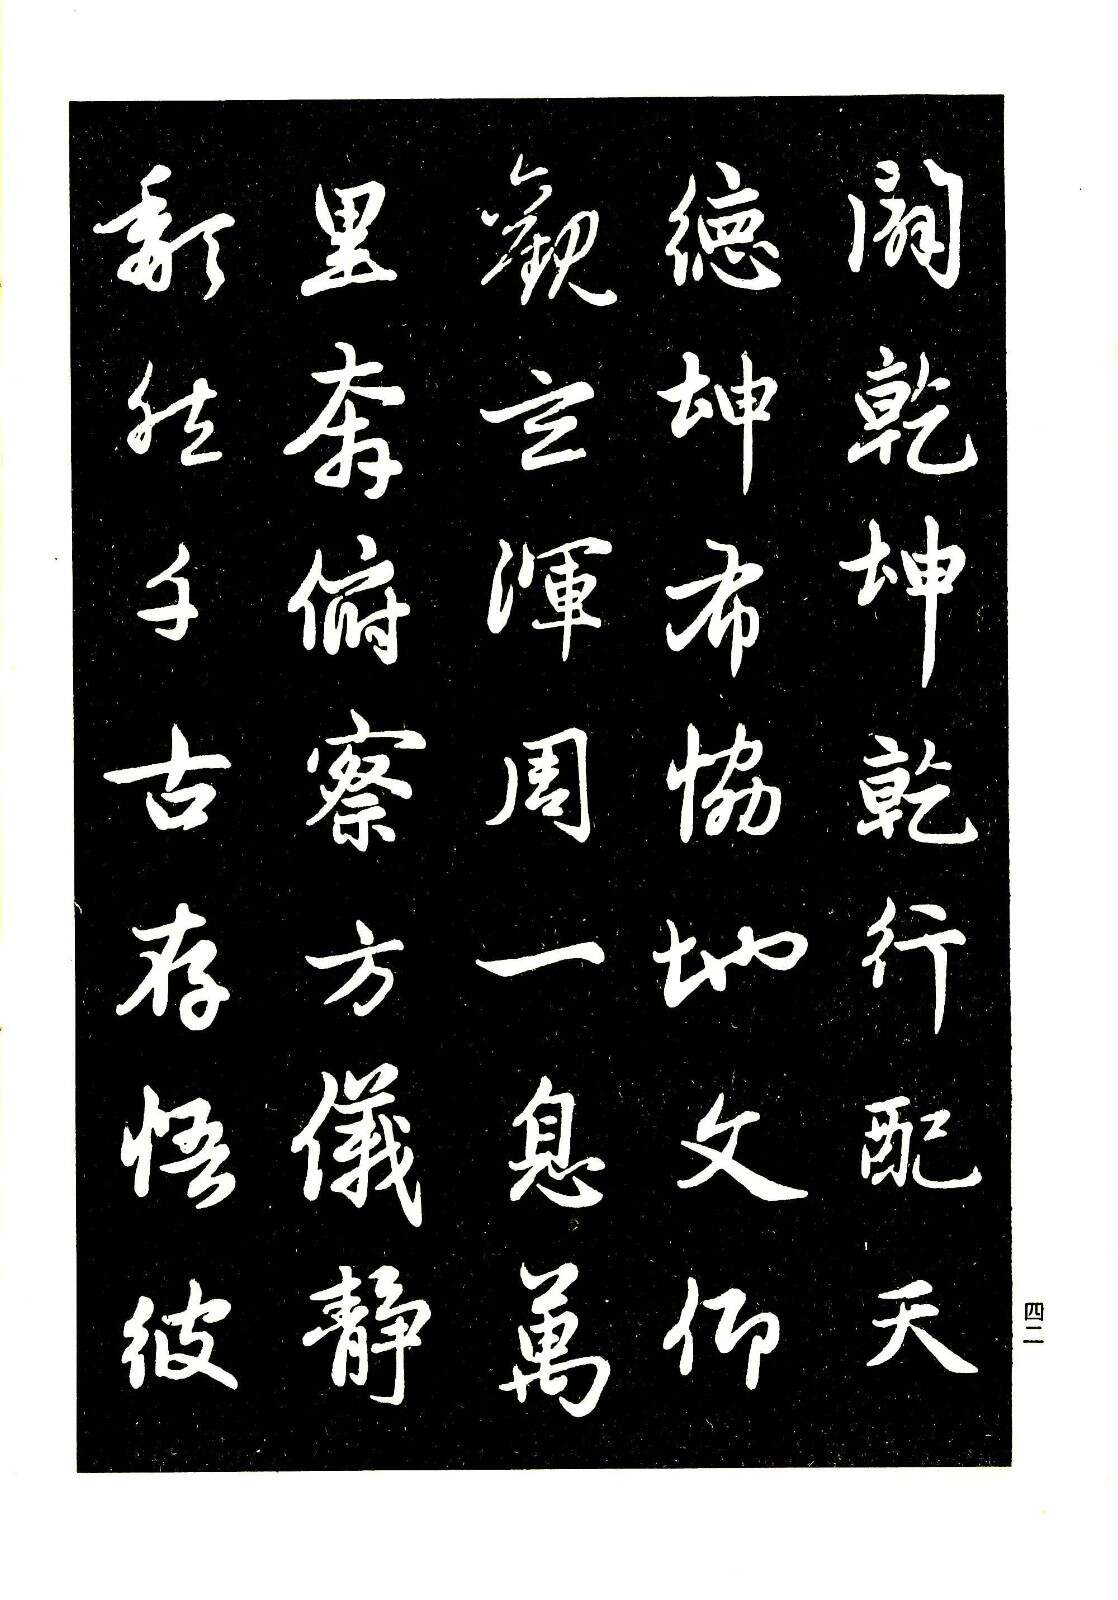 闢乾坤乾行配天
德坤布協地文仰
觀玄渾周一息萬
里奔俯察方儀靜
頹然千古存悟彼
四二